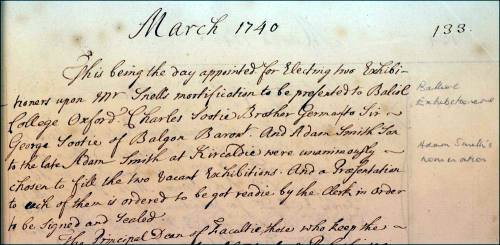 March 1740
133.
This being the day appointed for Electing two Exhibi-
tioners upon Mr Snells mortification to be presented to Baliol
College Oxford. Charles Sootie Brother German to Sir
George Sootie of Balgon Baront. And Adam Smith Son
to the late Adam Smith at Kircaldie were unanimously
chosen to fill the two vacant Exhibitions. And a Presentation
to each of them is ordered to be got readie by the Clerk in order
to be Signed and Sealed.
The Principal Dean of Facultie those who keep the
Exhibitioners
Adam Smith's
nomination